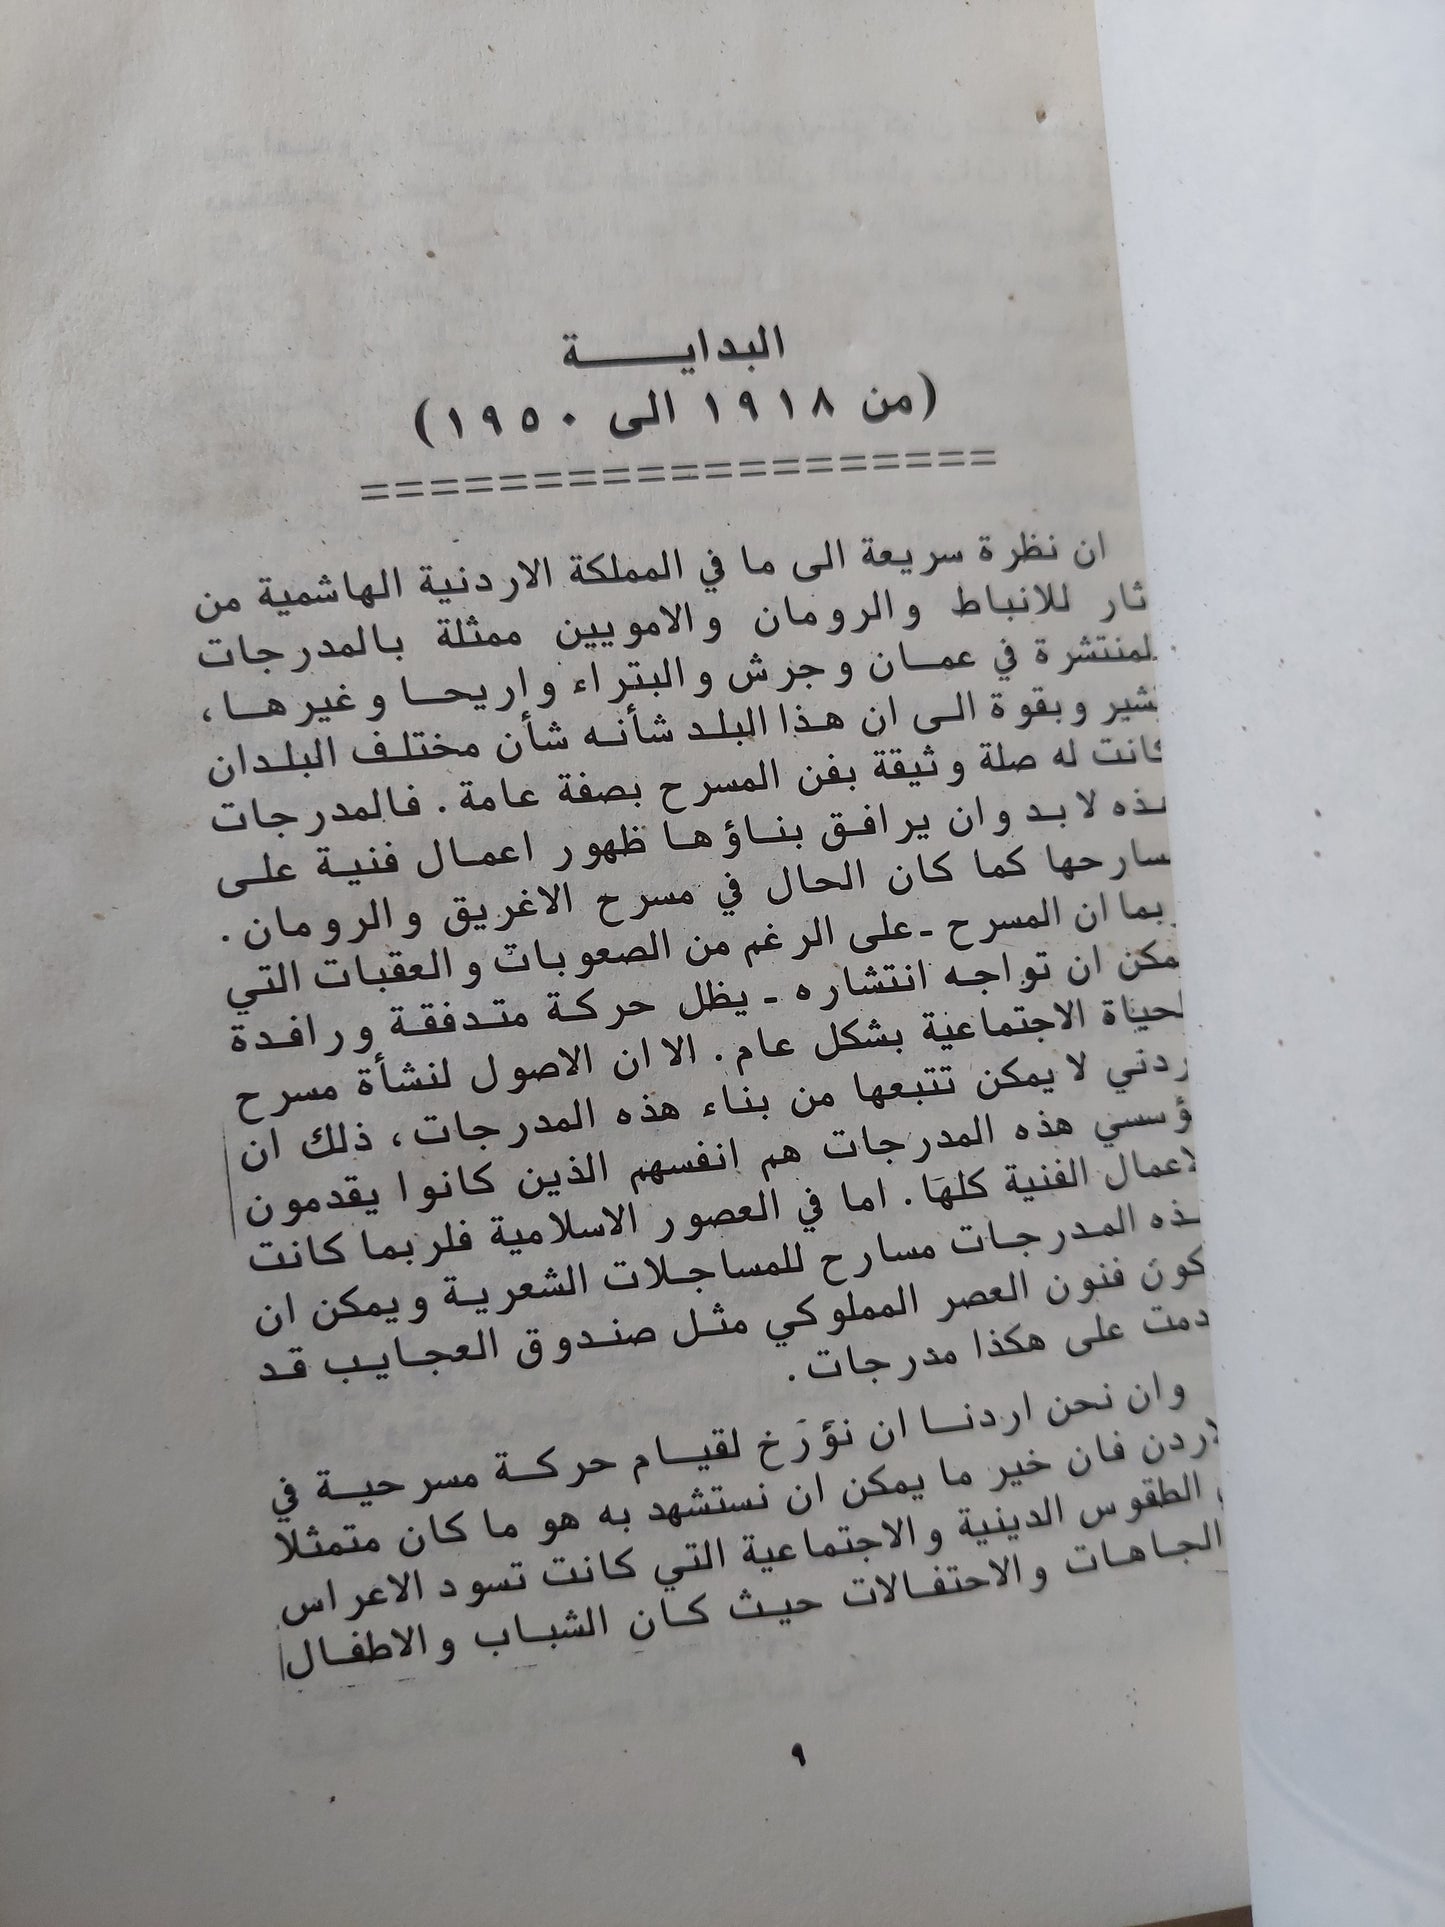 البدايـــــــة
(من ١٩١٨ الى ١٩٥٠)
===================
ان نظرة سريعة الى ما في المملكة الاردنية الهاشمية من
ثار للانباط والرومان والامويين ممثلة بالمدرجات
لمنتشرة في عمـان وجرش والبتراء واريحـا وغيرهـا،
شير وبقوة الـى ان هـذا البلـد شأنـه شأن مختلـف البلـدان
كانت له صلة وثيقة بفن المسرح بصفة عامة. فالمدرجات
ـذه لابـد وان يرافـق بنـاؤهـا ظهور اعمـال فنيـة علـى
سارحها كما كان الحال في مسرح الاغريق والرومان.
بما ان المسرح - على الرغم من الصعوبات والعقبات التي
مكن ان تواجـه انتشاره - يظل حركـة متـدفقـة ورافـدة
لحياة الاجتماعية بشكل عام. الا ان الاصول لنشأة مسرح
ردني لا يمكن تتبعها من بناء هذه المدرجات، ذلك ان
ؤسسي هذه المدرجات هم انفسهم الذين كانوا يقدمون
لاعمال الفنية كلهَا. اما في العصور الاسلامية فلربما كانت
ـذه المـدرجـات مسارح للمساجـلات الشعريـة ويمكن ان
كون فنون العصر المملوكي مثـل صنـدوق العجـايـب قـد
دمت على هكذا مدرجات.
وان نحن اردنـا ان نؤرَخ لقيـام حركـة مسرحيـة في
لاردن فان خير ما يمكن ان نستشهد به هو ما كان متمثلاً
الطقوس الدينية والاجتماعية التي كانت تسود الاعراس
الجـاهـات والاحتفـالات حيـث كـان الشبـاب والاطفـال
٩